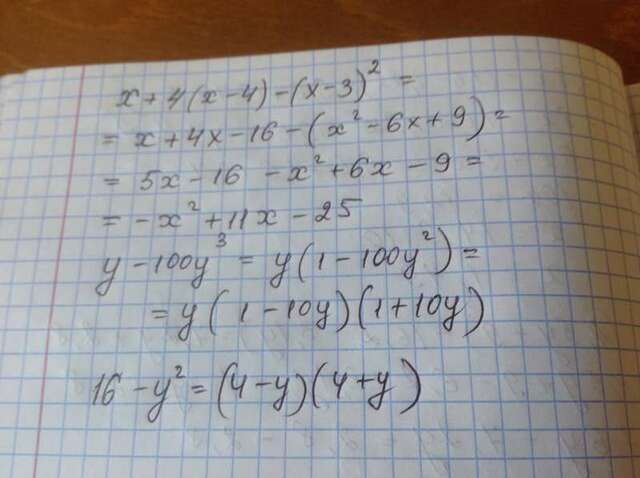 x+4(x-4)-(x-3)² =
= x+4x-16-(x²-6x+9)=
= 5x-16 -x²+6x-9=
= -x²+11x-25
y-100y³ = y(1-100y²)=
=y(1-10y)(1+10y)
16-y²=(4-y)(4+y)